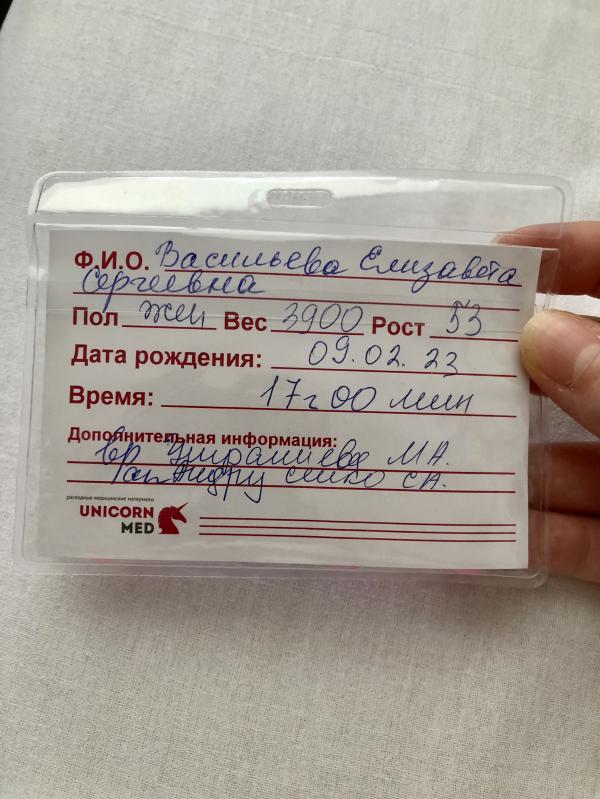 Ф.И.О. Васильева Елизавета
Сергеевна
Пол жен Вес 3900 Рост 53
Дата рождения: 09.02.23
Время: 17ч 00 мин
Дополнительная информация:
вр М.А.
С.А.
расходные медицинские материалы
UNICORN
MED